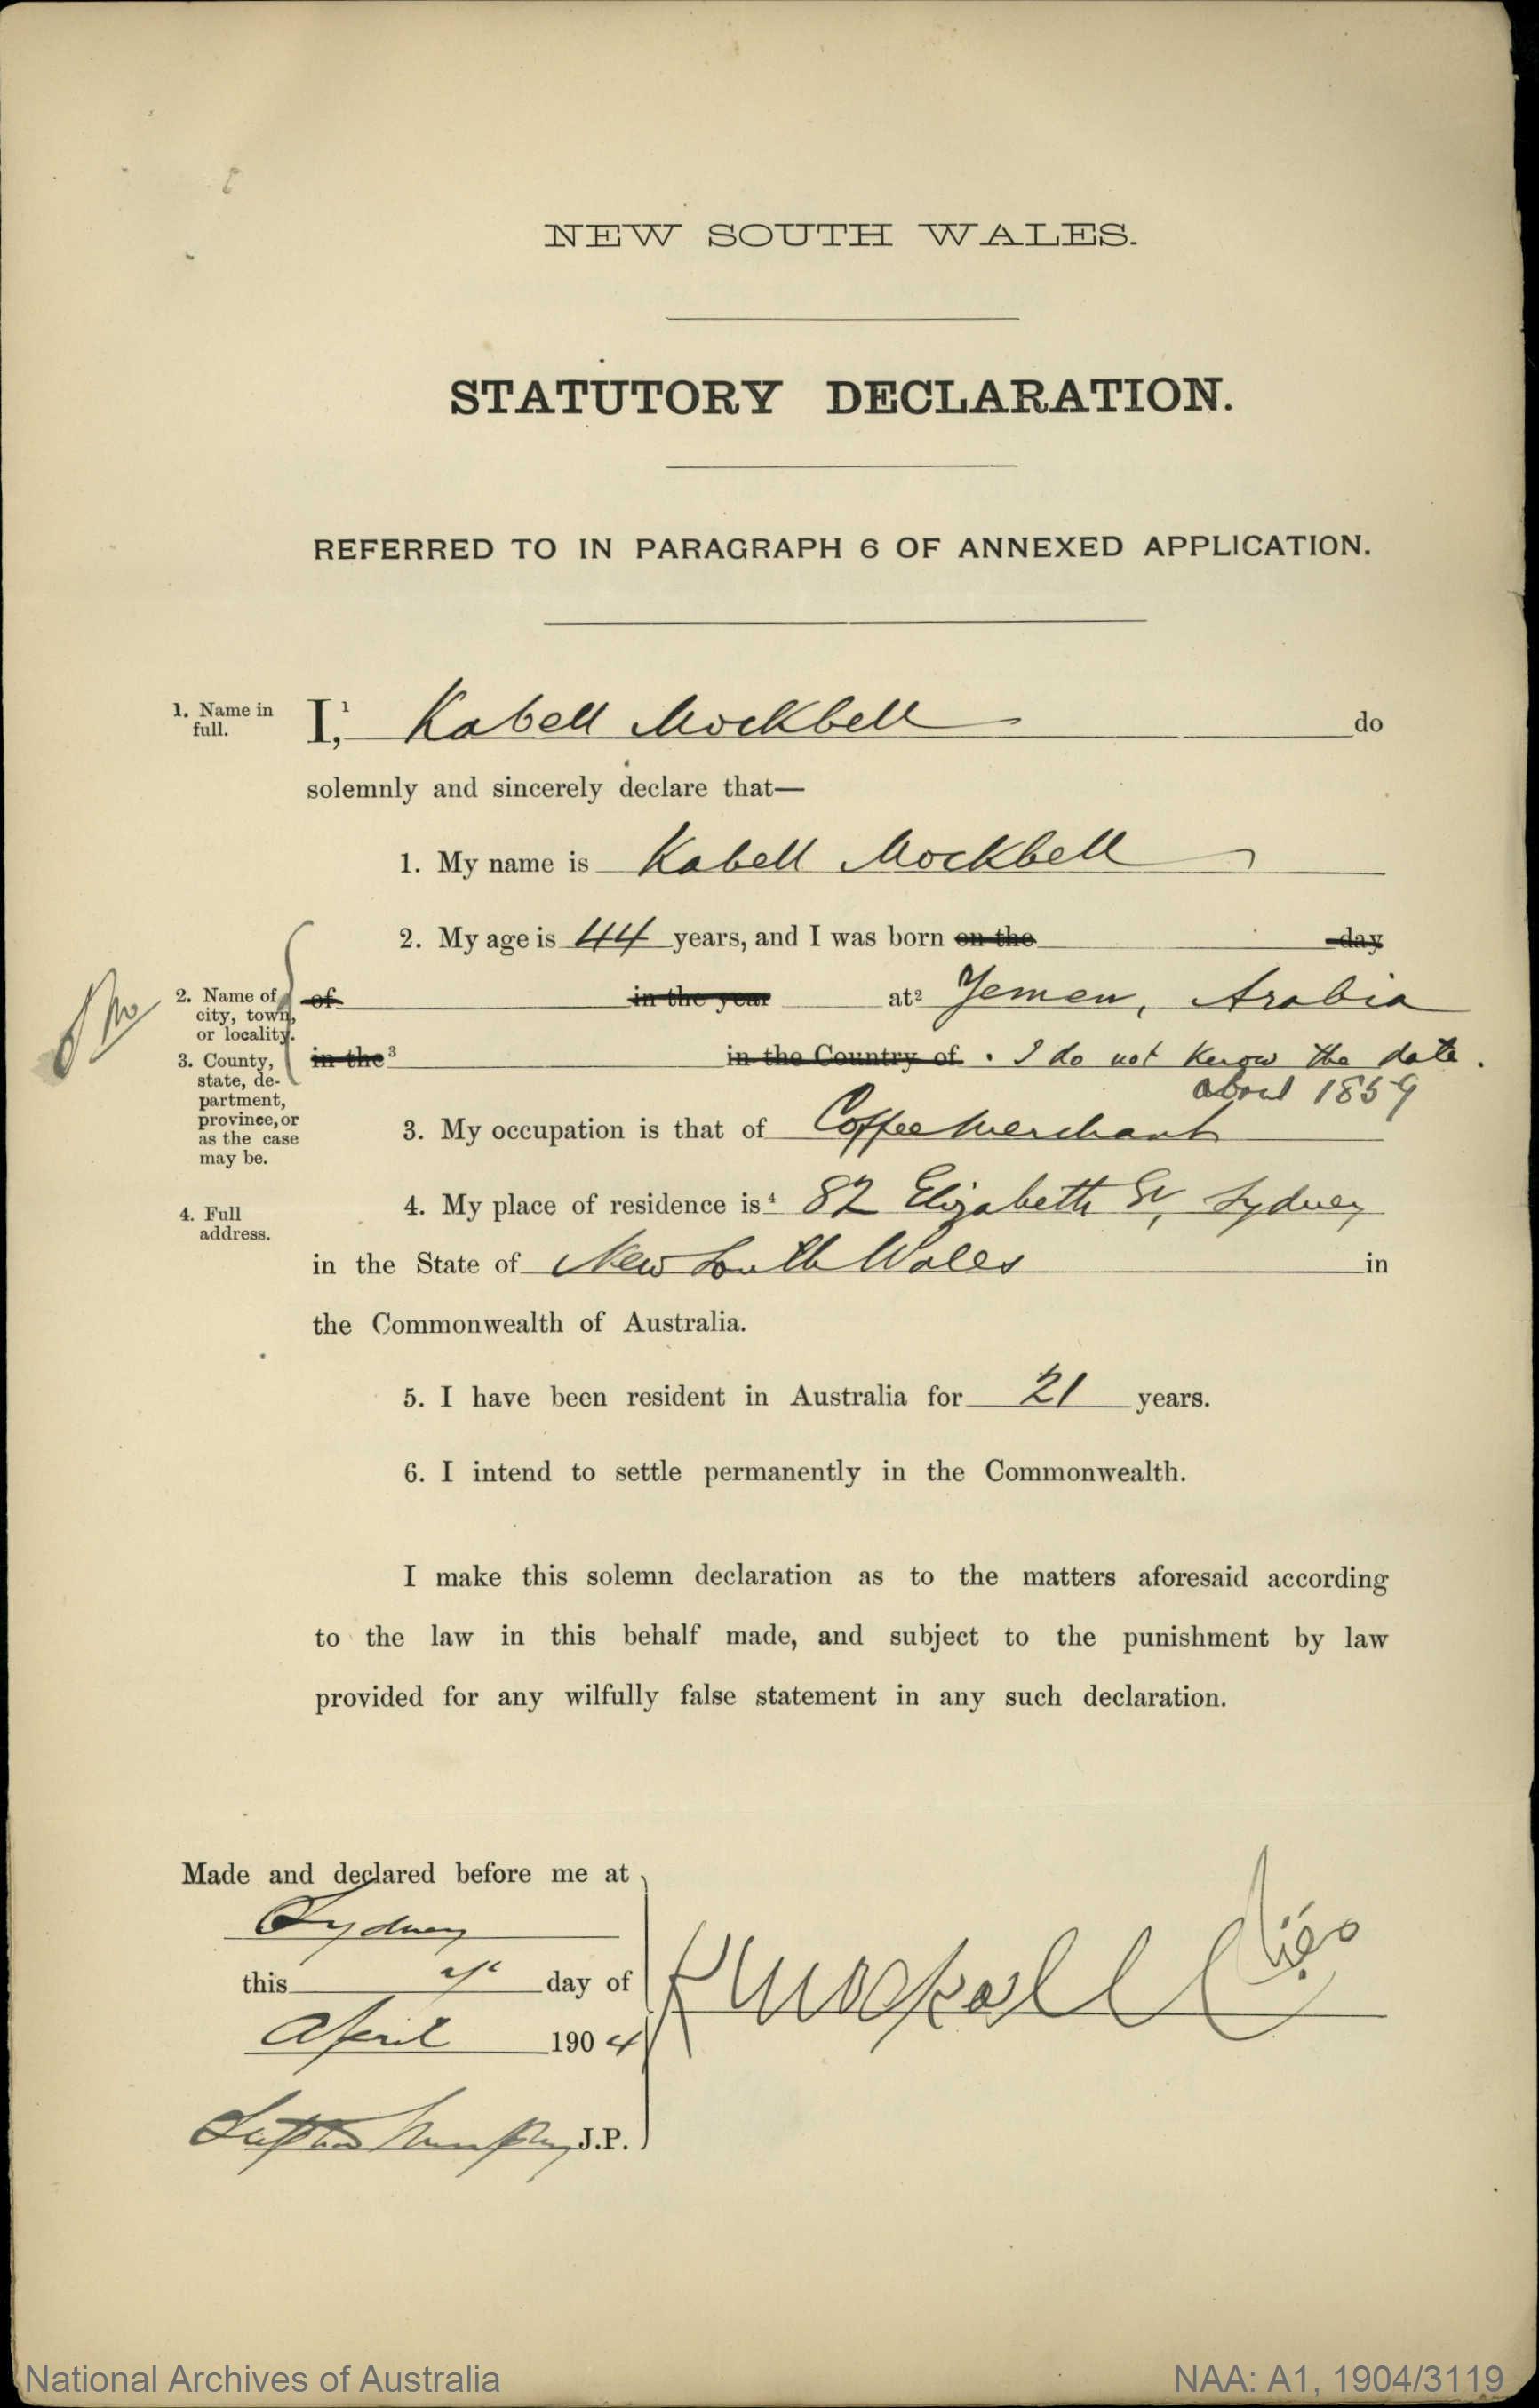 NEW SOUTH WALES.
STATUTORY DECLARATION.
REFERRED TO IN PARAGRAPH 6 OF ANNEXED APPLICATION.
1. Name in full.
I,¹ Kabell Mockbell do
solemnly and sincerely declare that—
1. My name is Kabell Mockbell
2. My age is 44 years, and I was born on the day
2. Name of city, town, or locality.
of in the year at² Yemen, Arabia
3. County, state, department, province, or as the case may be.
in the³ in the Country of . I do not know the date.
about 1859
3. My occupation is that of Coffee Merchant
4. Full address.
4. My place of residence is⁴ 82 Elizabeth St, Sydney
in the State of New South Wales in
the Commonwealth of Australia.
5. I have been resident in Australia for 21 years.
6. I intend to settle permanently in the Commonwealth.
I make this solemn declaration as to the matters aforesaid according
to the law in this behalf made, and subject to the punishment by law
provided for any wilfully false statement in any such declaration.
Made and declared before me at
Sydney
this day of
April 1904
J.P.
National Archives of Australia
NAA: A1, 1904/3119